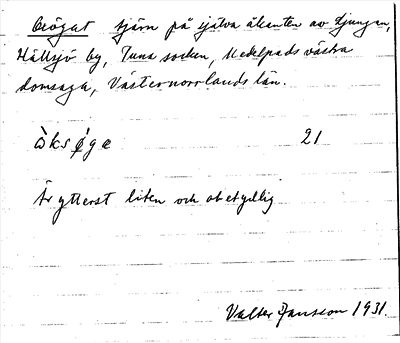 Oxögat tjärn på själva åkanten av Ljungan,
Hällsjö by, Tuna socken, Medelpads västra
domsaga, Västernorrlands län.
ò̀ksø̀ge 21
Är ytterst liten och obetydlig
Valter Jansson 1931.